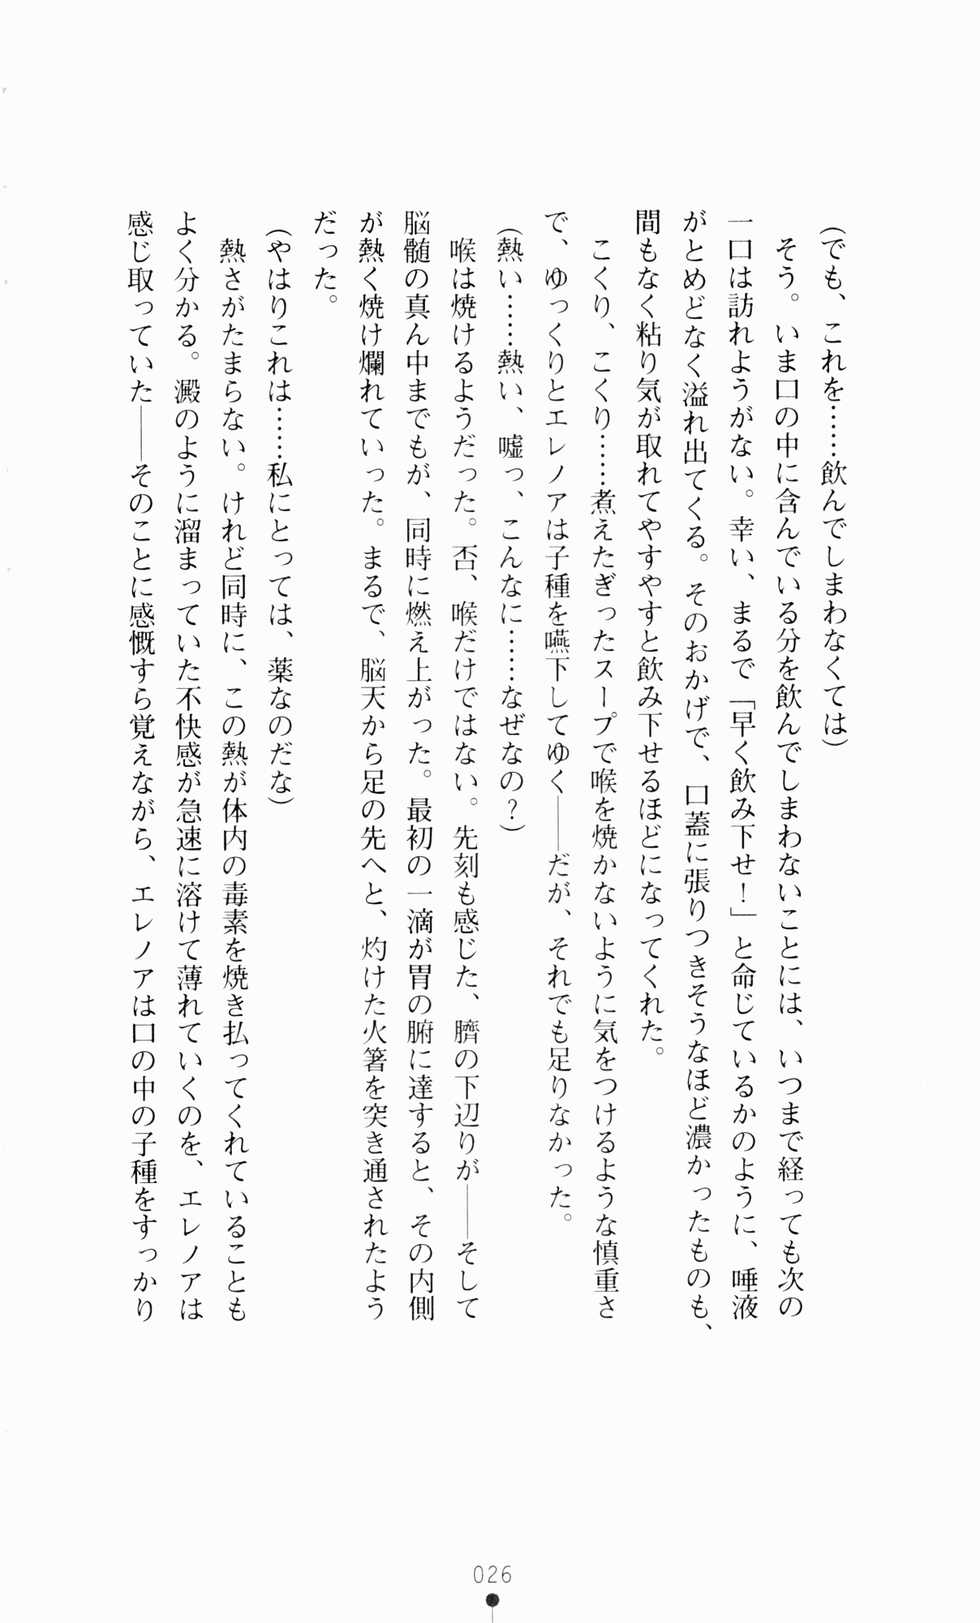 (でも、これを……飲んでしまわなくては)
そう。いま口の中に含んでいる分を飲んでしまわないことには、いつまで経っても次の
一口は訪れようがない。幸い、まるで「早く飲み下せ！」と命じているかのように、唾液
がとめどなく溢れ出てくる。そのおかげで、口蓋に張りつきそうなほど濃かったものも、
間もなく粘り気が取れてやすやすと飲み下せるほどになってくれた。
こくり、こくり……煮えたぎったスープで喉を焼かないように気をつけるような慎重さ
で、ゆっくりとエレノアは子種を嚥下してゆく――だが、それでも足りなかった。
(熱い……熱い、嘘っ、こんなに……なぜなの？)
喉は焼けるようだった。否、喉だけではない。先刻も感じた、臍の下辺りが――そして
脳髄の真ん中までもが、同時に燃え上がった。最初の一滴が胃の腑に達すると、その内側
が熱く焼け爛れていった。まるで、脳天から足の先へと、灼けた火箸を突き通されたよう
だった。
(やはりこれは……私にとっては、薬なのだな)
熱さがたまらない。けれど同時に、この熱が体内の毒素を焼き払ってくれていることも
よく分かる。澱のように溜まっていた不快感が急速に溶けて薄れていくのを、エレノアは
感じ取っていた――そのことに感慨すら覚えながら、エレノアは口の中の子種をすっかり
026